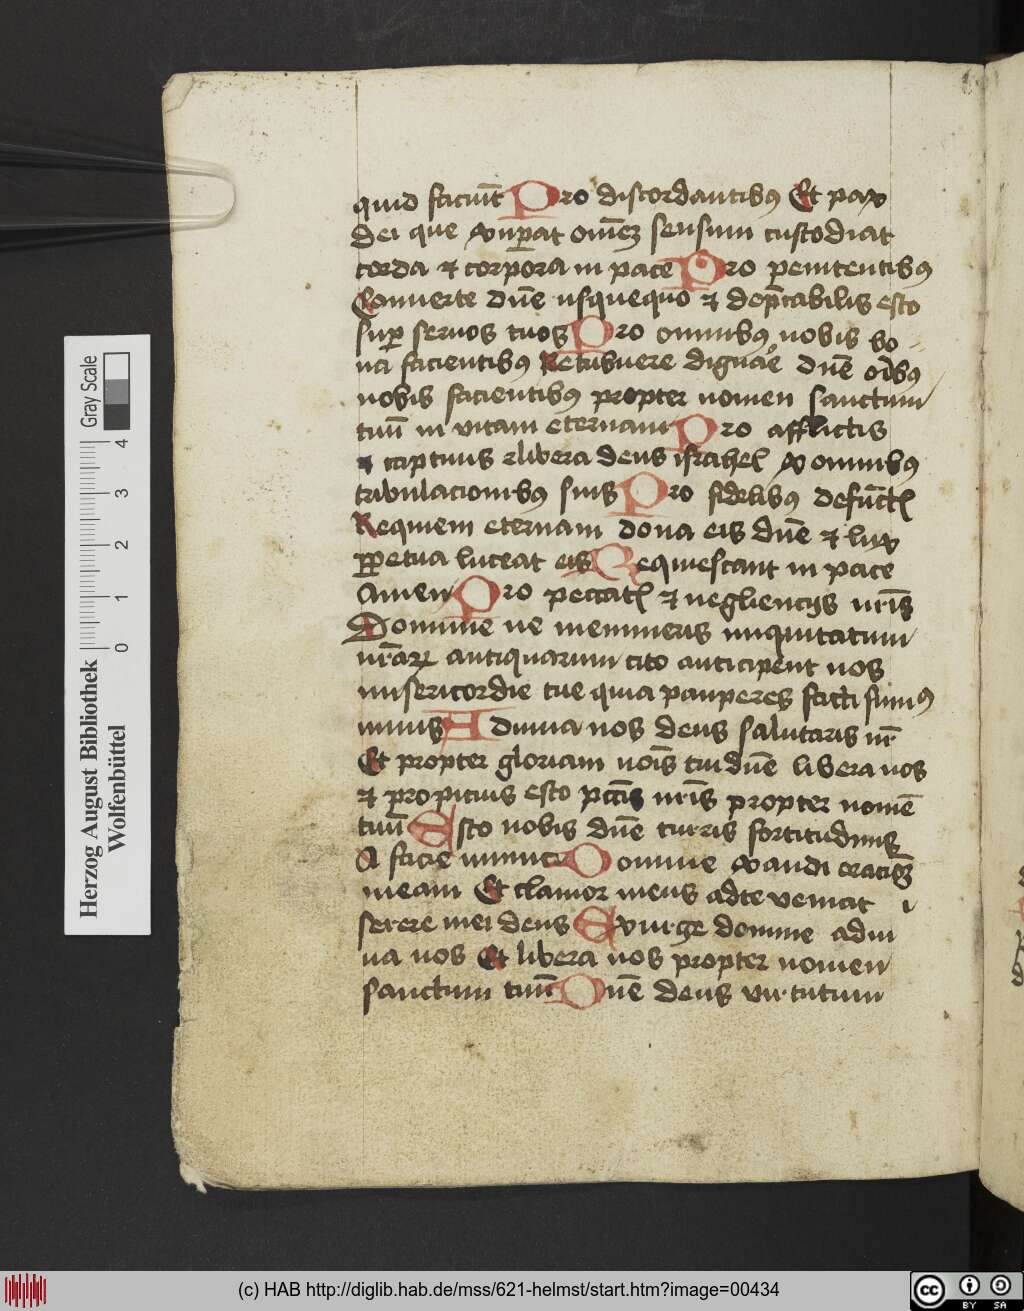 quid faciu͞t Pro discordantibꝰ Et pax
dei que exup̲at om̅eꝫ sensum custodiat
corda ⁊ corpora in pace Pro penitentibꝰ
Conuerte dn̅e usquequo ⁊ dep̅cabilis esto
sup̲ seruos tuos Pro omnibꝰ nobis bo
na facientibꝰ Retribuere dignar̅ dn̅e oi̅bꝰ
nobis facientibꝰ propter nomen sanctum
tuu̅ in vitam eternam Pro afflictis
⁊ captiuis libera deus israhel ex omnibꝰ
tribulacionibꝰ suis Pro fidelibꝰ defunctꝭ
Requiem eternam dona eis dn̅e ⁊ lux
ꝑpetua luceat eis Requiescant in pace
Amen Pro peccatꝭ ⁊ negliencijs nr̅is
Domine ne memineris iniquitatum
nr̅aꝝ antiquarum cito anticipent nos
misericordie tue quia pauperes facti sumꝰ
nimis Adiuua nos deus salutaris nr̅
Et propter gloriam no̅is tui dn̅e libera nos
⁊ propitius esto pcc̅is nr̅is propter nome̅
tuu̅ Esto nobis dn̅e turris fortitudinis
A facie inimici Domine exaudi oracio̅eꝫ
meam Et clamor meus ad te veniat
serere mei deus Exurge domine adiu
ua nos Et libera nos propter nomen
sanctum tuu̅ Dn̅e deus virtutum
Gray Scale
0 1 2 3 4
Herzog August Bibliothek
Wolfenbüttel
(c) HAB http://diglib.hab.de/mss/621-helmst/start.htm?image=00434
cc BY SA